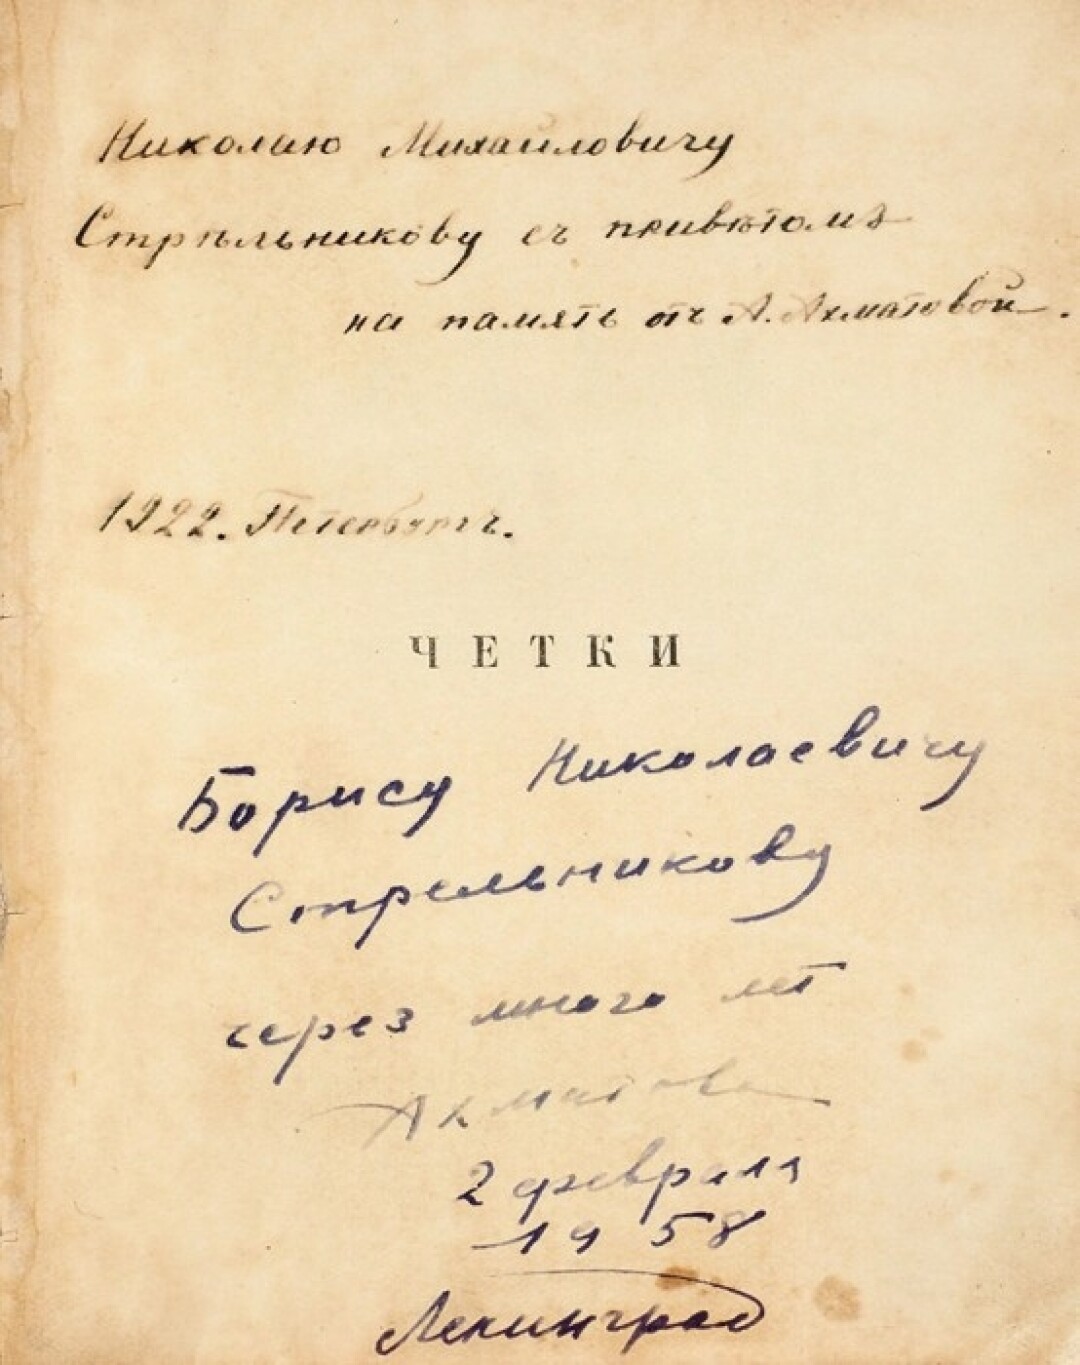 Николаю Михайловичу
Стрѣльникову съ привѣтомъ
на память отъ А. Ахматовой.
1922. Петербургъ.
ЧЕТКИ
Борису Николаевичу
Стрельникову
через много лет
Ахматова
2 февраля
1958
Ленинград